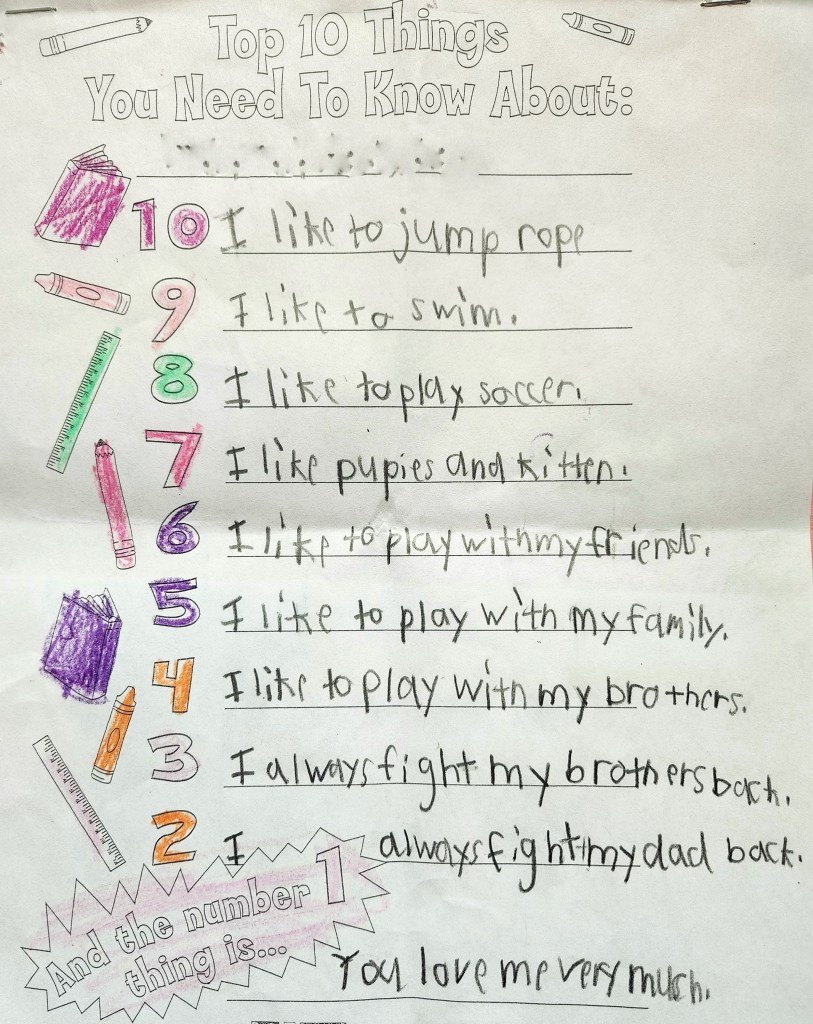 Top 10 Things
You Need To Know About:
10 I like to jump rope
9 I like to swim.
8 I like to play soccer.
7 I like pupies and kitten.
6 I like to play with my friends.
5 I like to play with my family.
4 I like to play with my brothers.
3 I always fight my brothers back.
2 I always fight my dad back.
And the number 1
thing is...
You love me very much.